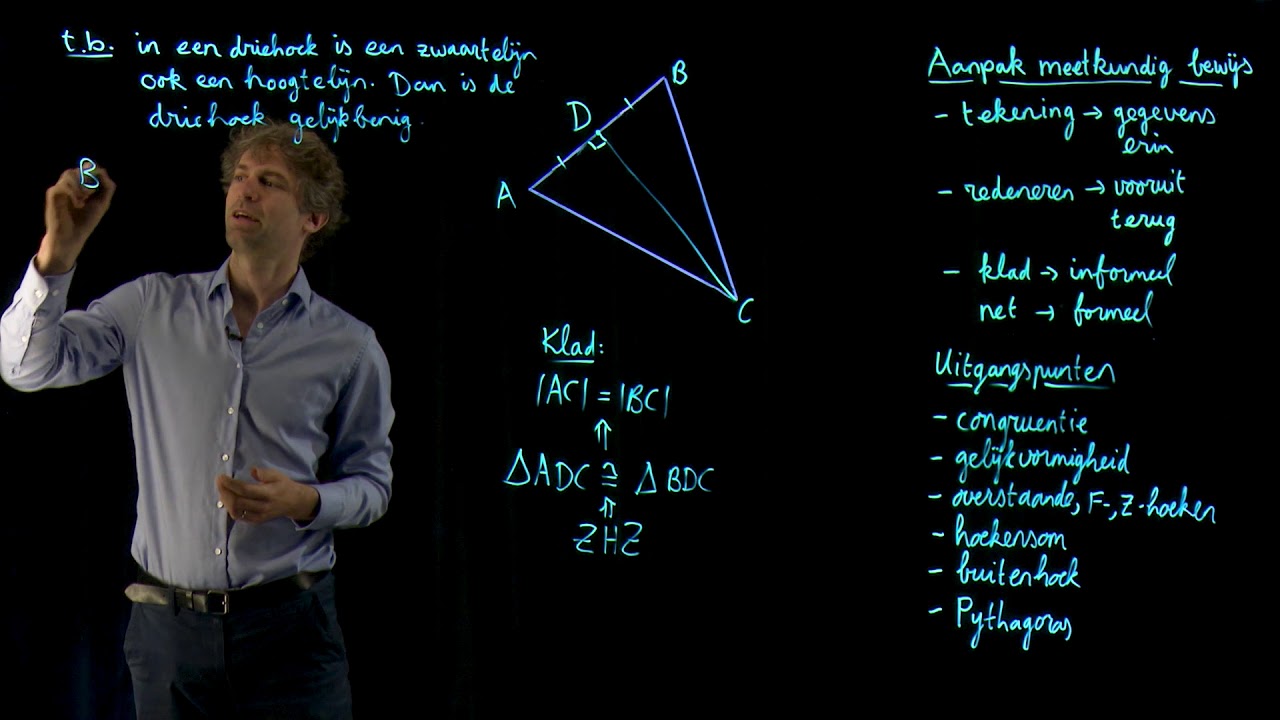 t.b. in een driehoek is een zwaartelijn
ook een hoogtelijn. Dan is de
driehoek gelijkbenig.
B
B
D
A
C
Klad:
|AC| = |BC|
⇑
ΔADC ≅ ΔBDC
⇑
ZHZ
Aanpak meetkundig bewijs
- tekening → gegevens
erin
- redeneren → vooruit
terug
- klad → informeel
net → formeel
Uitgangspunten
- congruentie
- gelijkvormigheid
- overstaande, F-, Z-hoeken
- hoekensom
- buitenhoek
- Pythagoras